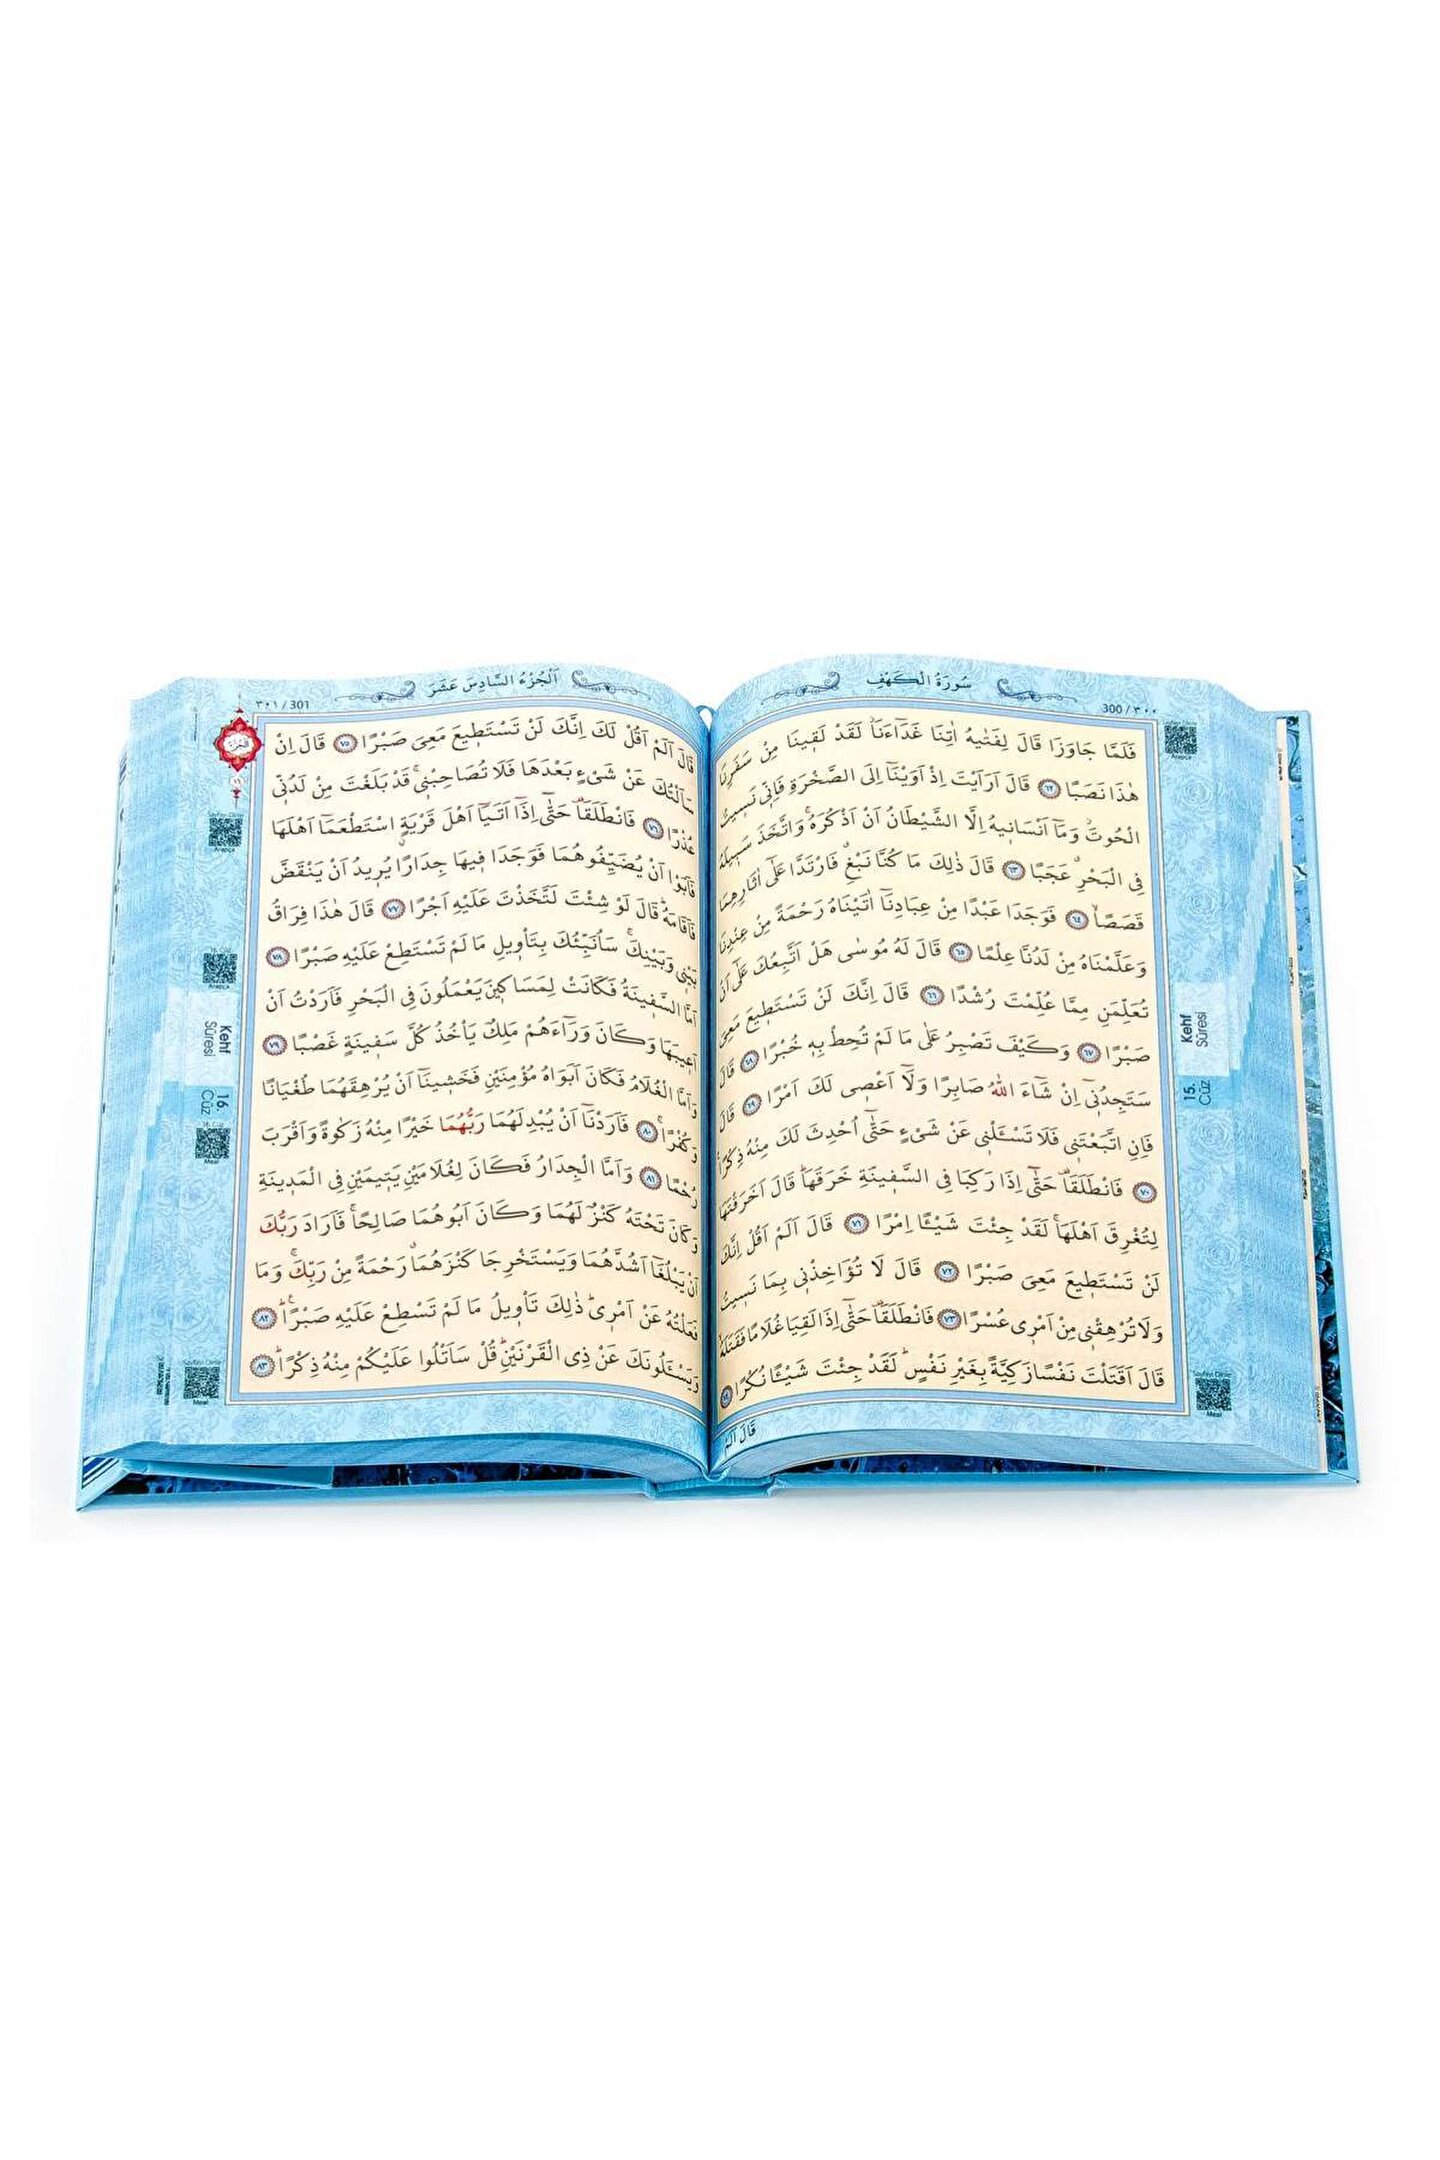 سُورَةُ الْكَهْفِ
300 / ٣٠٠
فَلَمَّا جَاوَزَا قَالَ لِفَتٰيهُ اٰتِنَا غَدَٓاءَنَاۘ لَقَدْ لَق۪ينَا مِنْ سَفَرِنَا
هٰذَا نَصَبًا ﴿٦٢﴾ قَالَ اَرَاَيْتَ اِذْ اَوَيْنَٓا اِلَى الصَّخْرَةِ فَاِنّ۪ي نَس۪يتُ
الْحُوتَۘ وَمَٓا اَنْسَان۪يهُ اِلَّا الشَّيْطَانُ اَنْ اَذْكُرَهُۚ وَاتَّخَذَ سَب۪يلَهُ
فِي الْبَحْرِۗ عَجَبًا ﴿٦٣﴾ قَالَ ذٰلِكَ مَا كُنَّا نَبْغِۗ فَارْتَدَّا عَلٰٓى اٰثَارِهِمَا
قَصَصًاۙ ﴿٦٤﴾ فَوَجَدَا عَبْدًا مِنْ عِبَادِنَٓا اٰتَيْنَاهُ رَحْمَةً مِنْ عِنْدِنَا
وَعَلَّمْنَاهُ مِنْ لَدُنَّا عِلْمًا ﴿٦٥﴾ قَالَ لَهُ مُوسٰى هَلْ اَتَّبِعُكَ عَلٰٓى اَنْ
تُعَلِّمَنِ مِمَّا عُلِّمْتَ رُشْدًا ﴿٦٦﴾ قَالَ اِنَّكَ لَنْ تَسْتَط۪يعَ مَعِيَ
صَبْرًا ﴿٦٧﴾ وَكَيْفَ تَصْبِرُ عَلٰى مَا لَمْ تُحِطْ بِه۪ خُبْرًا ﴿٦٨﴾ قَالَ
سَتَجِدُن۪ٓي اِنْ شَٓاءَ اللّٰهُ صَابِرًا وَلَٓا اَعْص۪ي لَكَ اَمْرًا ﴿٦٩﴾ قَالَ
فَاِنِ اتَّبَعْتَن۪ي فَلَا تَسْـَٔلْن۪ي عَنْ شَيْءٍ حَتّٰٓى اُحْدِثَ لَكَ مِنْهُ ذِكْرًا۟
﴿٧٠﴾ فَانْطَلَقَا۠ حَتّٰٓى اِذَا رَكِبَا فِي السَّف۪ينَةِ خَرَقَهَاۜ قَالَ اَخَرَقْتَهَا
لِتُغْرِقَ اَهْلَهَاۚ لَقَدْ جِئْتَ شَيْـًٔا اِمْرًا ﴿٧١﴾ قَالَ اَلَمْ اَقُلْ اِنَّكَ
لَنْ تَسْتَط۪يعَ مَعِيَ صَبْرًا ﴿٧٢﴾ قَالَ لَا تُؤَاخِذْن۪ي بِمَا نَس۪يتُ
وَلَا تُرْهِقْن۪ي مِنْ اَمْر۪ي عُسْرًا ﴿٧٣﴾ فَانْطَلَقَا۠ حَتّٰٓى اِذَا لَقِيَا غُلَامًا فَقَتَلَهُۙ
قَالَ اَقَتَلْتَ نَفْسًا زَكِيَّةً بِغَيْرِ نَفْسٍۜ لَقَدْ جِئْتَ شَيْـًٔا نُكْرًا ﴿٧٤﴾
قَالَ اَلَمْ
Kehf
Sûresi
15.
Cüz
اَلْجُزْءُ السَّادِسَ عَشَرَ
٣٠١ / 301
قَالَ اَلَمْ اَقُلْ لَكَ اِنَّكَ لَنْ تَسْتَط۪يعَ مَعِيَ صَبْرًا ﴿٧٥﴾ قَالَ اِنْ
سَاَلْتُكَ عَنْ شَيْءٍ بَعْدَهَا فَلَا تُصَاحِبْن۪يۚ قَدْ بَلَغْتَ مِنْ لَدُنّ۪ي
عُذْرًا ﴿٧٦﴾ فَانْطَلَقَا۠ حَتّٰٓى اِذَٓا اَتَيَٓا اَهْلَ قَرْيَةٍۨ اسْتَطْعَمَٓا اَهْلَهَا
فَاَبَوْا اَنْ يُضَيِّفُوهُمَا فَوَجَدَا ف۪يهَا جِدَارًا يُر۪يدُ اَنْ يَنْقَضَّ
فَاَقَامَهُۜ قَالَ لَوْ شِئْتَ لَتَّخَذْتَ عَلَيْهِ اَجْرًا ﴿٧٧﴾ قَالَ هٰذَا فِرَاقُ
بَيْن۪ي وَبَيْنِكَۚ سَاُنَبِّئُكَ بِتَأْو۪يلِ مَا لَمْ تَسْتَطِعْ عَلَيْهِ صَبْرًا ﴿٧٨﴾
اَمَّا السَّف۪ينَةُ فَكَانَتْ لِمَسَاك۪ينَ يَعْمَلُونَ فِي الْبَحْرِ فَاَرَدْتُ اَنْ
اَع۪يبَهَا وَكَانَ وَرَٓاءَهُمْ مَلِكٌ يَأْخُذُ كُلَّ سَف۪ينَةٍ غَصْبًا ﴿٧٩﴾
وَاَمَّا الْغُلَامُ فَكَانَ اَبَوَاهُ مُؤْمِنَيْنِ فَخَش۪ينَٓا اَنْ يُرْهِقَهُمَا طُغْيَانًا
وَكُفْرًاۚ ﴿٨٠﴾ فَاَرَدْنَٓا اَنْ يُبْدِلَهُمَا رَبُّهُمَا خَيْرًا مِنْهُ زَكٰوةً وَاَقْرَبَ
رُحْمًا ﴿٨١﴾ وَاَمَّا الْجِدَارُ فَكَانَ لِغُلَامَيْنِ يَت۪يمَيْنِ فِي الْمَد۪ينَةِ
وَكَانَ تَحْتَهُ كَنْزٌ لَهُمَا وَكَانَ اَبُوهُمَا صَالِحًاۚ فَاَرَادَ رَبُّكَ
اَنْ يَبْلُغَٓا اَشُدَّهُمَا وَيَسْتَخْرِجَا كَنْزَهُمَاۗ رَحْمَةً مِنْ رَبِّكَۚ وَمَا
فَعَلْتُهُ عَنْ اَمْر۪يۜ ذٰلِكَ تَأْو۪يلُ مَا لَمْ تَسْطِعْ عَلَيْهِ صَبْرًاۜ۟ ﴿٨٢﴾
وَيَسْـَٔلُونَكَ عَنْ ذِي الْقَرْنَيْنِۜ قُلْ سَاَتْلُوا عَلَيْكُمْ مِنْهُ ذِكْرًاۜ ﴿٨٣﴾
Kehf
Sûresi
16.
Cüz